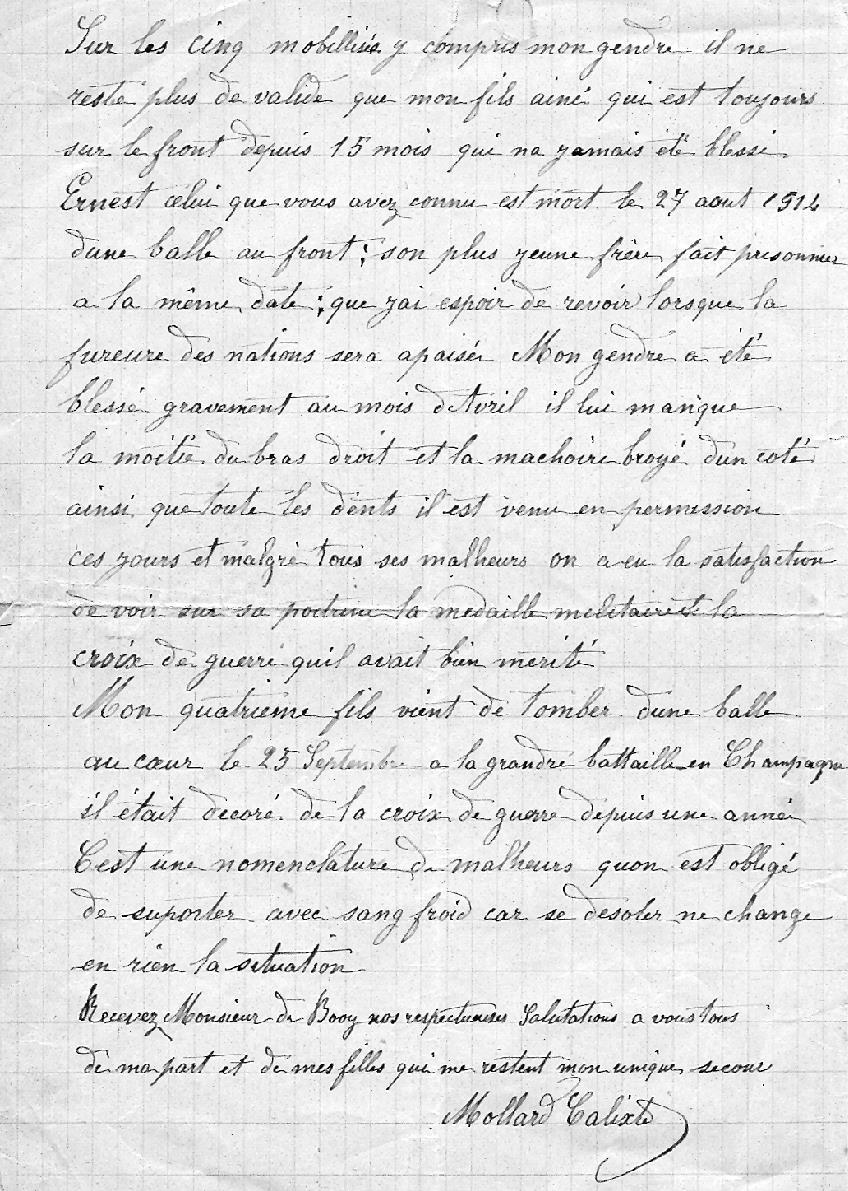 Sur les cinq mobillisés y compris mon gendre il ne
reste plus de valide que mon fils ainé qui est toujours
sur le front depuis 15 mois qui na jamais été blessé
Ernest celui que vous avez connu est mort le 27 aout 1914
dune balle au front ; son plus jeune frère fait prisonnier
a la même date ; que jai espoir de revoir lorsque la
fureure des nations sera apaisée Mon gendre a été
blessé gravement au mois d'Avril il lui manque
la moitié du bras droit et la machoire broyé dun coté
ainsi que toute les dents il est venu en permission
ces jours et malgré tous ses malheurs on a eu la satisfaction
de voir sur sa poitrine la medaille militaire et la
croix de guerre quil avait bien merité
Mon quatrième fils vient de tomber dune balle
au cœur le 25 Septembre a la grande battaille en Champagne
il était decoré de la croix de guerre depuis une année
C'est une nomenclature de malheurs quon est obligé
de suporter avec sang froid car se desoler ne change
en rien la situation
Recevez Monsieur de Booy nos respectueuses Salutations a vous tous
de ma part et de mes filles qui me restent mon unique secour
Mollard Calixte